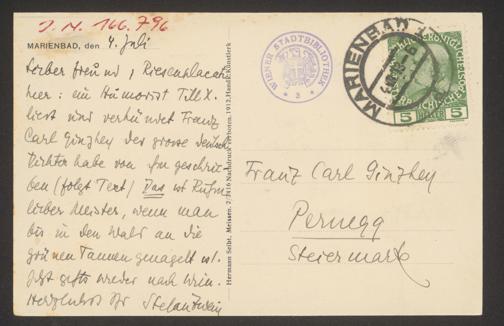 J. N. 166.796
MARIENBAD, den 4. Juli
Lieber Freund, Riesenplacate
hier: ein Humorist Till X.
liest und verkündet Franz
Carl Ginzkey der grosse deutsche
Dichter habe von ihm geschrie-
ben (folgt Text) Das ist Ruhm
lieber Meister, wenn man
bis in den Wald an die
grünen Tannen genagelt ist.
Jetzt gehts wieder nach Wien.
Herzlichst Ihr Stefan Zweig
Hermann Seibt, Meissen.
WIENER STADTBIBLIOTHEK
* 3 *
MARIENBAD
5 HELLER 5
Franz Carl Ginzkey
Pernegg
Steiermark